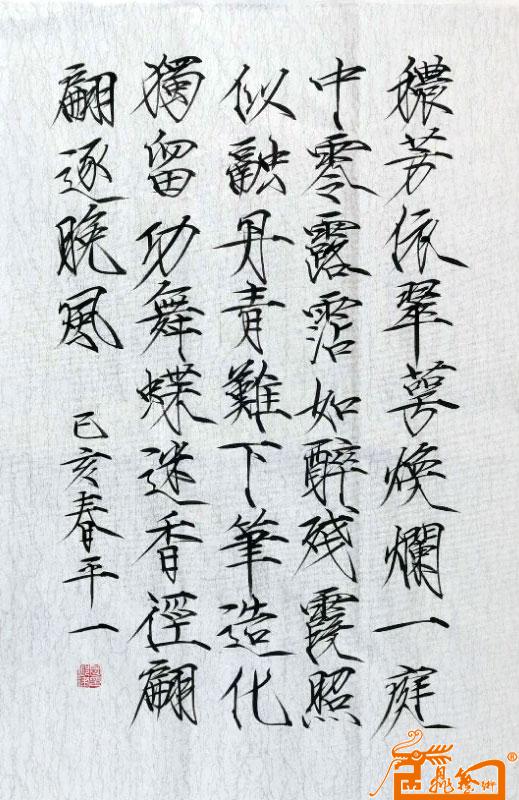 穠芳依翠萼煥爛一庭
中零露霑如醉残霞照
似融丹青難下筆造化
獨留功舞蝶迷香徑翩
翩逐晚風
己亥春平一